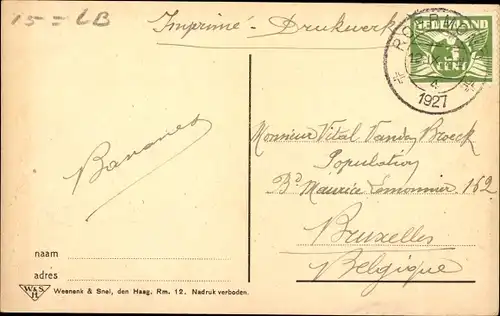 15 = LB
Imprimé - Drukwerk
NEDERLAND
CENT
ROERMO
4
1927
Bananes
Monsieur Vital Vanden Broeck
Population
Bd Maurice Lemonnier 162
Bruxelles
Belgique
naam
adres
W&S
H
Weenenk & Snel, den Haag. Rm. 12. Nadruk verboden.